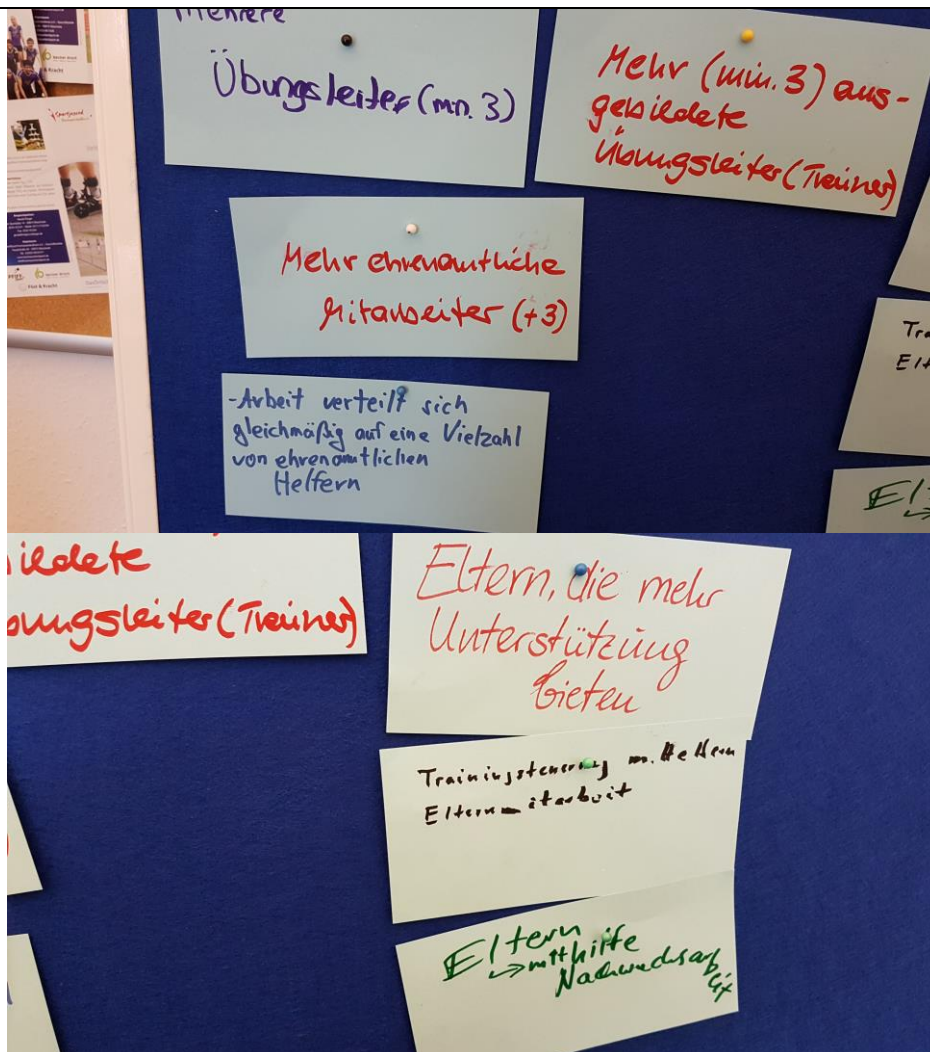 Mehrere
Übungsleiter (min. 3)
Mehr (min. 3) aus-
gebildete
Übungsleiter (Trainer)
Mehr ehrenamtliche
Mitarbeiter (+3)
-Arbeit verteilt sich
gleichmäßig auf eine Vielzahl
von ehrenamtlichen
Helfern
Tra
Elt
Elt
ildete
bungsleiter (Trainer)
Eltern, die mehr
Unterstützung
bieten
Trainingsteuerung m. Helfern
Elternmitarbeit
Eltern
→ mithilfe
Nachwuchsarb